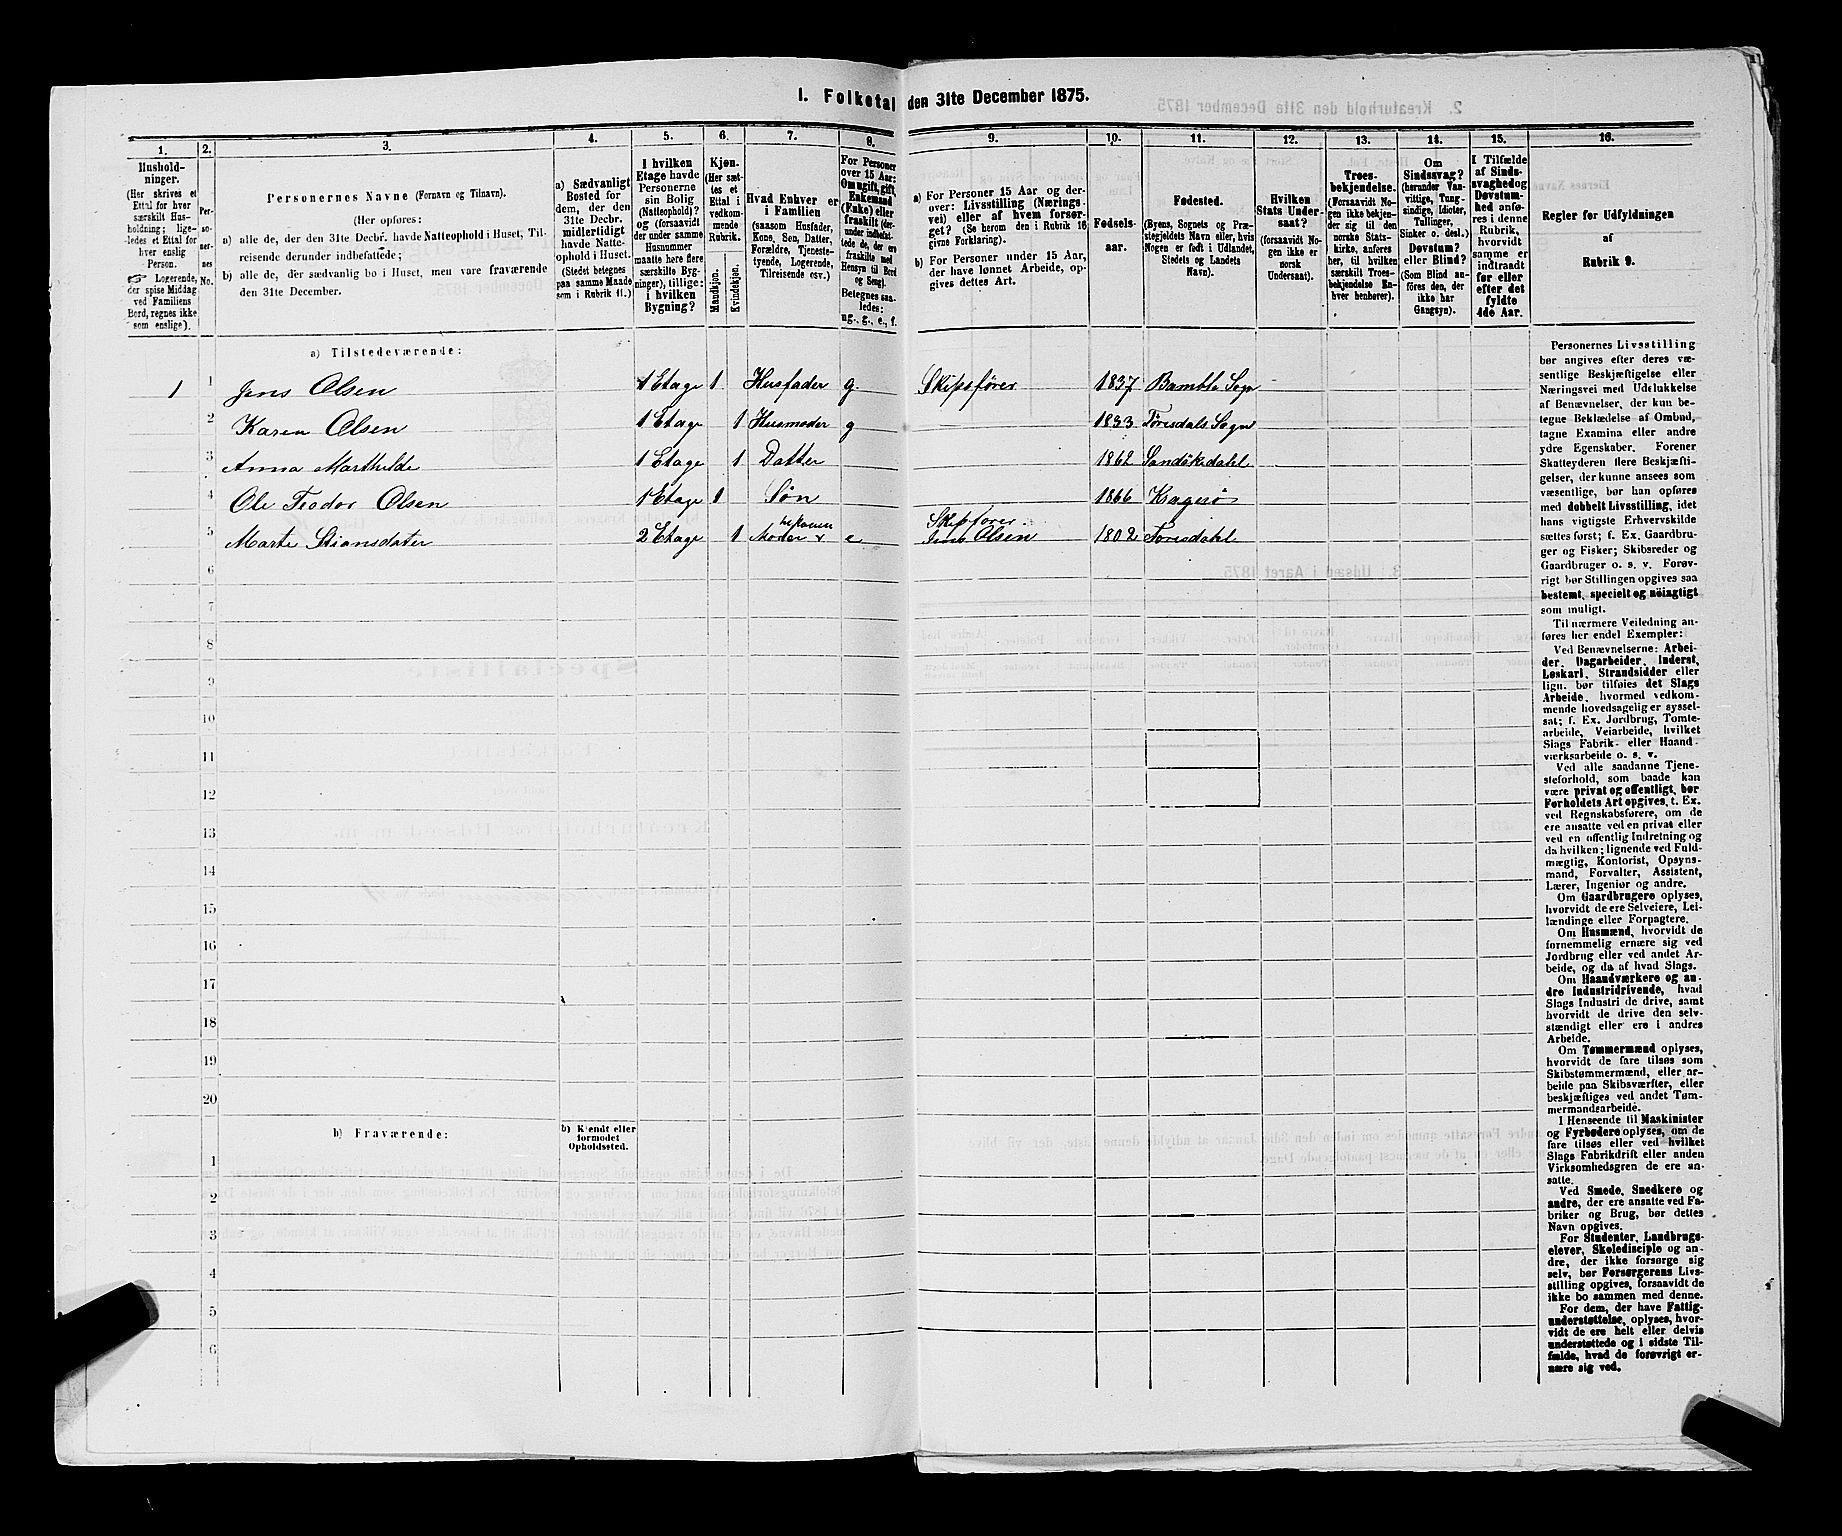 1. Folketal den 31te December 1875.
1.
Hushold-
ninger.
(Her skrives et
Ettal for hver
særskilt Hus-
holdning; lige-
ledes et Ettal for
hver enslig
Person.
Logerende,
der spise Middag
ved Familiens
Bord, regnes ikke
som enslige).
2.
Per-
so-
ner-
nes
No.
3.
Personernes Navne (Fornavn og Tilnavn).
(Her opføres:
a) alle de, der den 31te Decbr. havde Natteophold i Huset, Til-
reisende derunder indbefattede;
b) alle de, der sædvanlig bo i Huset, men vare fraværende
den 31te December.
4.
a) Sædvanligt
Bosted for
dem, der den
31te Decbr.
midlertidigt
havde Natte-
ophold i Huset.
(Stedet betegnes
paa samme Maade
som i Rubrik 11.)
5.
I hvilken
Etage havde
Personerne
sin Bolig
(Natteophold)?
og (forsaavidt
der under samme
Husnummer
maatte høre flere
særskilte Byg-
ninger), tillige:
i hvilken
Bygning?
6.
Kjøn.
(Her sæt-
tes et
Ettal i
vedkom-
mende
Rubrik.
Mandkjøn.
Kvindekjøn.
7.
Hvad Enhver er
i Familien
(saasom Husfader,
Kone, Søn, Datter,
Forældre, Tjeneste-
tyende, Logerende,
Tilreisende osv.)
8.
For Personer
over 15 Aar:
Om ugift, gift,
Enkemand
(Enke) eller
fraskilt (der-
under indbefat-
tede de, der ere
fraskilte med
Hensyn til Bord
og Seng).
Betegnes saa-
ledes:
ug., g., e., f.
9.
a) For Personer 15 Aar og der-
over: Livsstilling (Nærings-
vei) eller af hvem forsør-
get? (Se herom den i Rubrik 16
givne Forklaring).
b) For Personer under 15 Aar,
der have lønnet Arbeide, op-
gives dettes Art.
10.
Fødsels-
aar.
11.
Fødested.
(Byens, Sognets og Præ-
stegjeldets Navn eller, hvis
Nogen er født i Udlandet,
Stedets og Landets
Navn).
12.
Hvilken
Stats Under-
saat?
(forsaavidt No-
gen ikke er
norsk
Undersaat).
13.
Troes-
bekjendelse.
(Forsaavidt No-
gen ikke bekjen-
der sig til den
norske Stats-
kirke, anføres
her, til hvilken
særskilt Troes-
bekjendelse En-
hver henhører).
14.
Om
Sindssvag?
(herunder Van-
vittige, Tung-
sindige, Idioter,
Tullinger,
Sinker o. desl.)
Døvstum?
eller Blind?
(Som Blind an-
føres den, der
ikke har
Gangsyn).
15.
I Tilfælde
af Sinds-
svaghed og
Døvstum-
hed anfø-
res i denne
Rubrik,
hvorvidt
samme er
indtraadt
før eller
efter det
fyldte
4de Aar.
16.
Regler for Udfyldningen
af
Rubrik 9.
a) Tilstedeværende:
1 1 Jens Olsen 1 Etage 1 Husfader g. Skipsfører 1837 Bamble Sogn
2 Karen Olsen 1 Etage 1 Husmoder g 1833 Tørisdals Sogn
3 Anna Marthilde 1 Etage 1 Datter 1862 Sandökedahl
4 Ole Teodor Olsen 1 Etage 1 Søn 1866 Kragerø
5 Marte Stiansdater 2 Etage 1 Moder e Skipsfører Jens Olsen 1802 Törisdahl
6
7
8
9
10
11
12
13
14
15
16
17
18
19
20
b) Fraværende:
b) Kjendt eller
formodet
Opholdssted.
1
2
3
4
5
6
Personernes Livsstilling
bør angives efter deres væ-
sentlige Beskjæftigelse eller
Næringsvei med Udelukkelse
af Benævnelser, der kun be-
tegne Beklædelse af Ombud,
tagne Examina eller andre
ydre Egenskaber. Forener
Skatteyderen flere Beskjæfti-
gelser, der kunne ansees som
væsentlige, bør han opføres
med dobbelt Livsstilling, idet
hans vigtigste Erhvervskilde
sættes først; f. Ex. Gaardbru-
ger og Fisker; Skibsreder og
Gaardbruger o. s. v. Forøv-
rigt bør Stillingen opgives saa
bestemt, specielt og nöiagtigt
som muligt.
Til nærmere Veiledning an-
føres her endel Exempler:
Ved Benævnelserne: Arbei-
der, Dagarbeider, Inderst,
Løskarl, Strandsidder eller
lign. bør tilføies det Slags
Arbeide, hvormed vedkom-
mende hovedsagelig er syssel-
sat; f. Ex. Jordbrug, Tomte-
arbeide, Veiarbeide, hvilket
Slags Fabrik- eller Haand-
værksarbeide o. s. v.
Ved alle saadanne Tjene-
steforhold, som baade kan
være privat og offentligt, bør
Forholdets Art opgives, t. Ex.
ved Regnskabsførere, om de
ere ansatte ved en privat eller
ved en offentlig Indretning og
da hvilken; lignende ved Fuld-
mægtig, Kontorist, Opsyns-
mand, Forvalter, Assistent,
Lærer, Ingeniør og andre.
Om Gaardbrugere oplyses,
hvorvidt de ere Selveiere, Lei-
lændinge eller Forpagtere.
Om Husmænd, hvorvidt de
fornemmelig ernære sig ved
Jordbrug eller ved andet Ar-
beide, og da af hvad Slags.
Om Haandværkere og an-
dre Industridrivende, hvad
Slags Industri de drive, samt
hvorvidt de drive den selv-
stændigt eller ere i andres
Arbeide.
Om Tømmermænd oplyses,
hvorvidt de fare tilsøs som
Skibstømmermænd, eller ar-
beide paa Skibsværfter, eller
beskjæftiges ved andet Tøm-
mermandsarbeide.
I Henseende til Maskinister
og Fyrbødere oplyses, om de
fare tilsøs eller ved hvilket
Slags Fabrikdrift eller anden
Virksomhedsgren de ere an-
satte.
Ved Smede, Snedkere og
andre, der ere ansatte ved Fa-
briker og Brug, bør dettes
Navn opgives.
For Studenter, Landbrugs-
elever, Skoledisciple og an-
dre, der ikke forsørge sig
selv, bør Forsørgerens Livs-
stilling opgives, forsaavidt de
ikke bo sammen med denne.
For dem, der have Fattig-
understøttelse, oplyses, hvor-
vidt de ere helt eller delvis
understøttede og i sidste Til-
fælde, hvad de forøvrigt er-
nære sig ved.